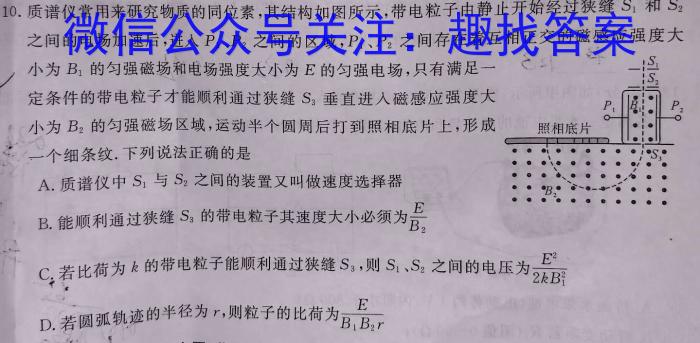 10. 质谱仪常用来研究物质的同位素,其结构如图所示,带电粒子由静止开始经过狭缝 S₁ 和 S₂
微信公众号关注:趣找答案
之间的电场加速后,进入 P₁、P₂ 之间的区域,P₁、P₂ 之间存在着互相正交的磁感应强度大
小为 B₁ 的匀强磁场和电场强度大小为 E 的匀强电场,只有满足一
定条件的带电粒子才能顺利通过狭缝 S₃ 垂直进入磁感应强度大
小为 B₂ 的匀强磁场区域,运动半个圆周后打到照相底片上,形成
一个细条纹. 下列说法正确的是
A. 质谱仪中 S₁ 与 S₂ 之间的装置又叫做速度选择器
B. 能顺利通过狭缝 S₃ 的带电粒子其速度大小必须为 E/B₂
C. 若比荷为 k 的带电粒子能顺利通过狭缝 S₃,则 S₁、S₂ 之间的电压为 E²/2kB₁²
D. 若圆弧轨迹的半径为 r,则粒子的比荷为 E/B₁B₂r
S₁
S₂
P₁
P₂
照相底片
S₃
B₂